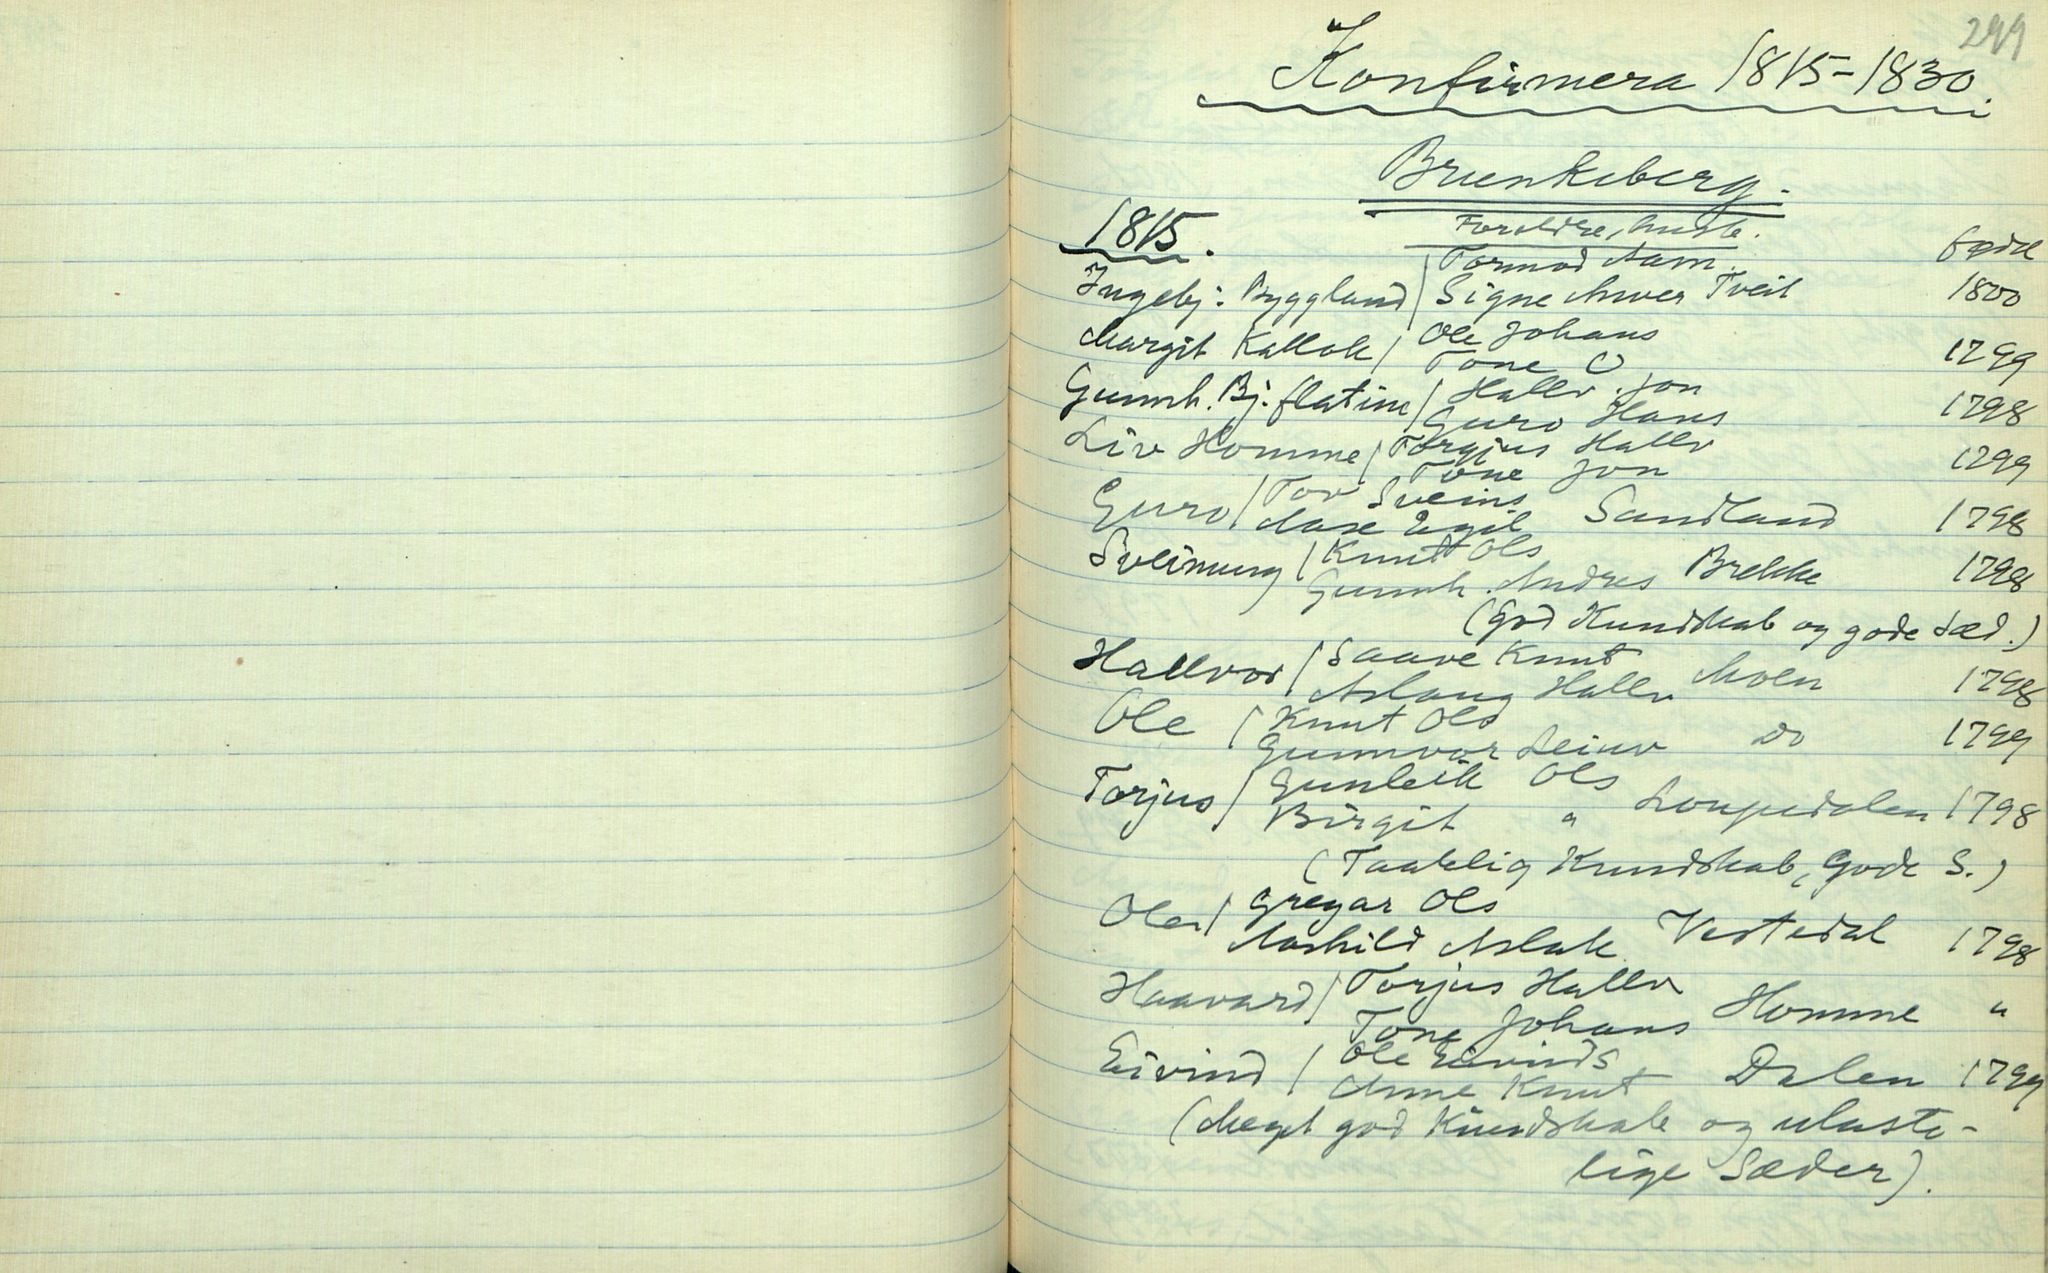 299
Konfirmera 1815-1830.
Brunkeberg.
1815. Foreldre, huste. fødd
Tormod Aam
Ingebj. Byggland / Signe Anver Tveit 1800
Margit Kallok / Ole Johans 1799
Tone O
Gunnh. Bj. flatin / Hallv. Jon 1798
Guro Hans
Liv Homme / Torgjus Hallv 1799
Tone Jon
Guro / Tor Sveins Sandland 1798
Aase Egil
Sveinung / Knut Ols Brekke 1798
Gunnh. Andres
(God Kundskab og gode Sæd.)
Hallvor / Saave Knut Moen 1798
Aslaug Hallv
Ole / Knut Ols Do 1799
Gunnvor Leiuv
Torjus / Gunleik Ols Loupedalen 1798
Birgit "
(Taalelig Kundskab, Gode S.)
Ole / Gregar Ols Vestedal 1798
Aashild Aslak
Haavard / Torjus Hallv Homme "
Tone Johans
Eivind / Ole Eivinds Dalen 1799
Anne Knut
(Meget god Kundskab og ulaste-
lige Sæder).